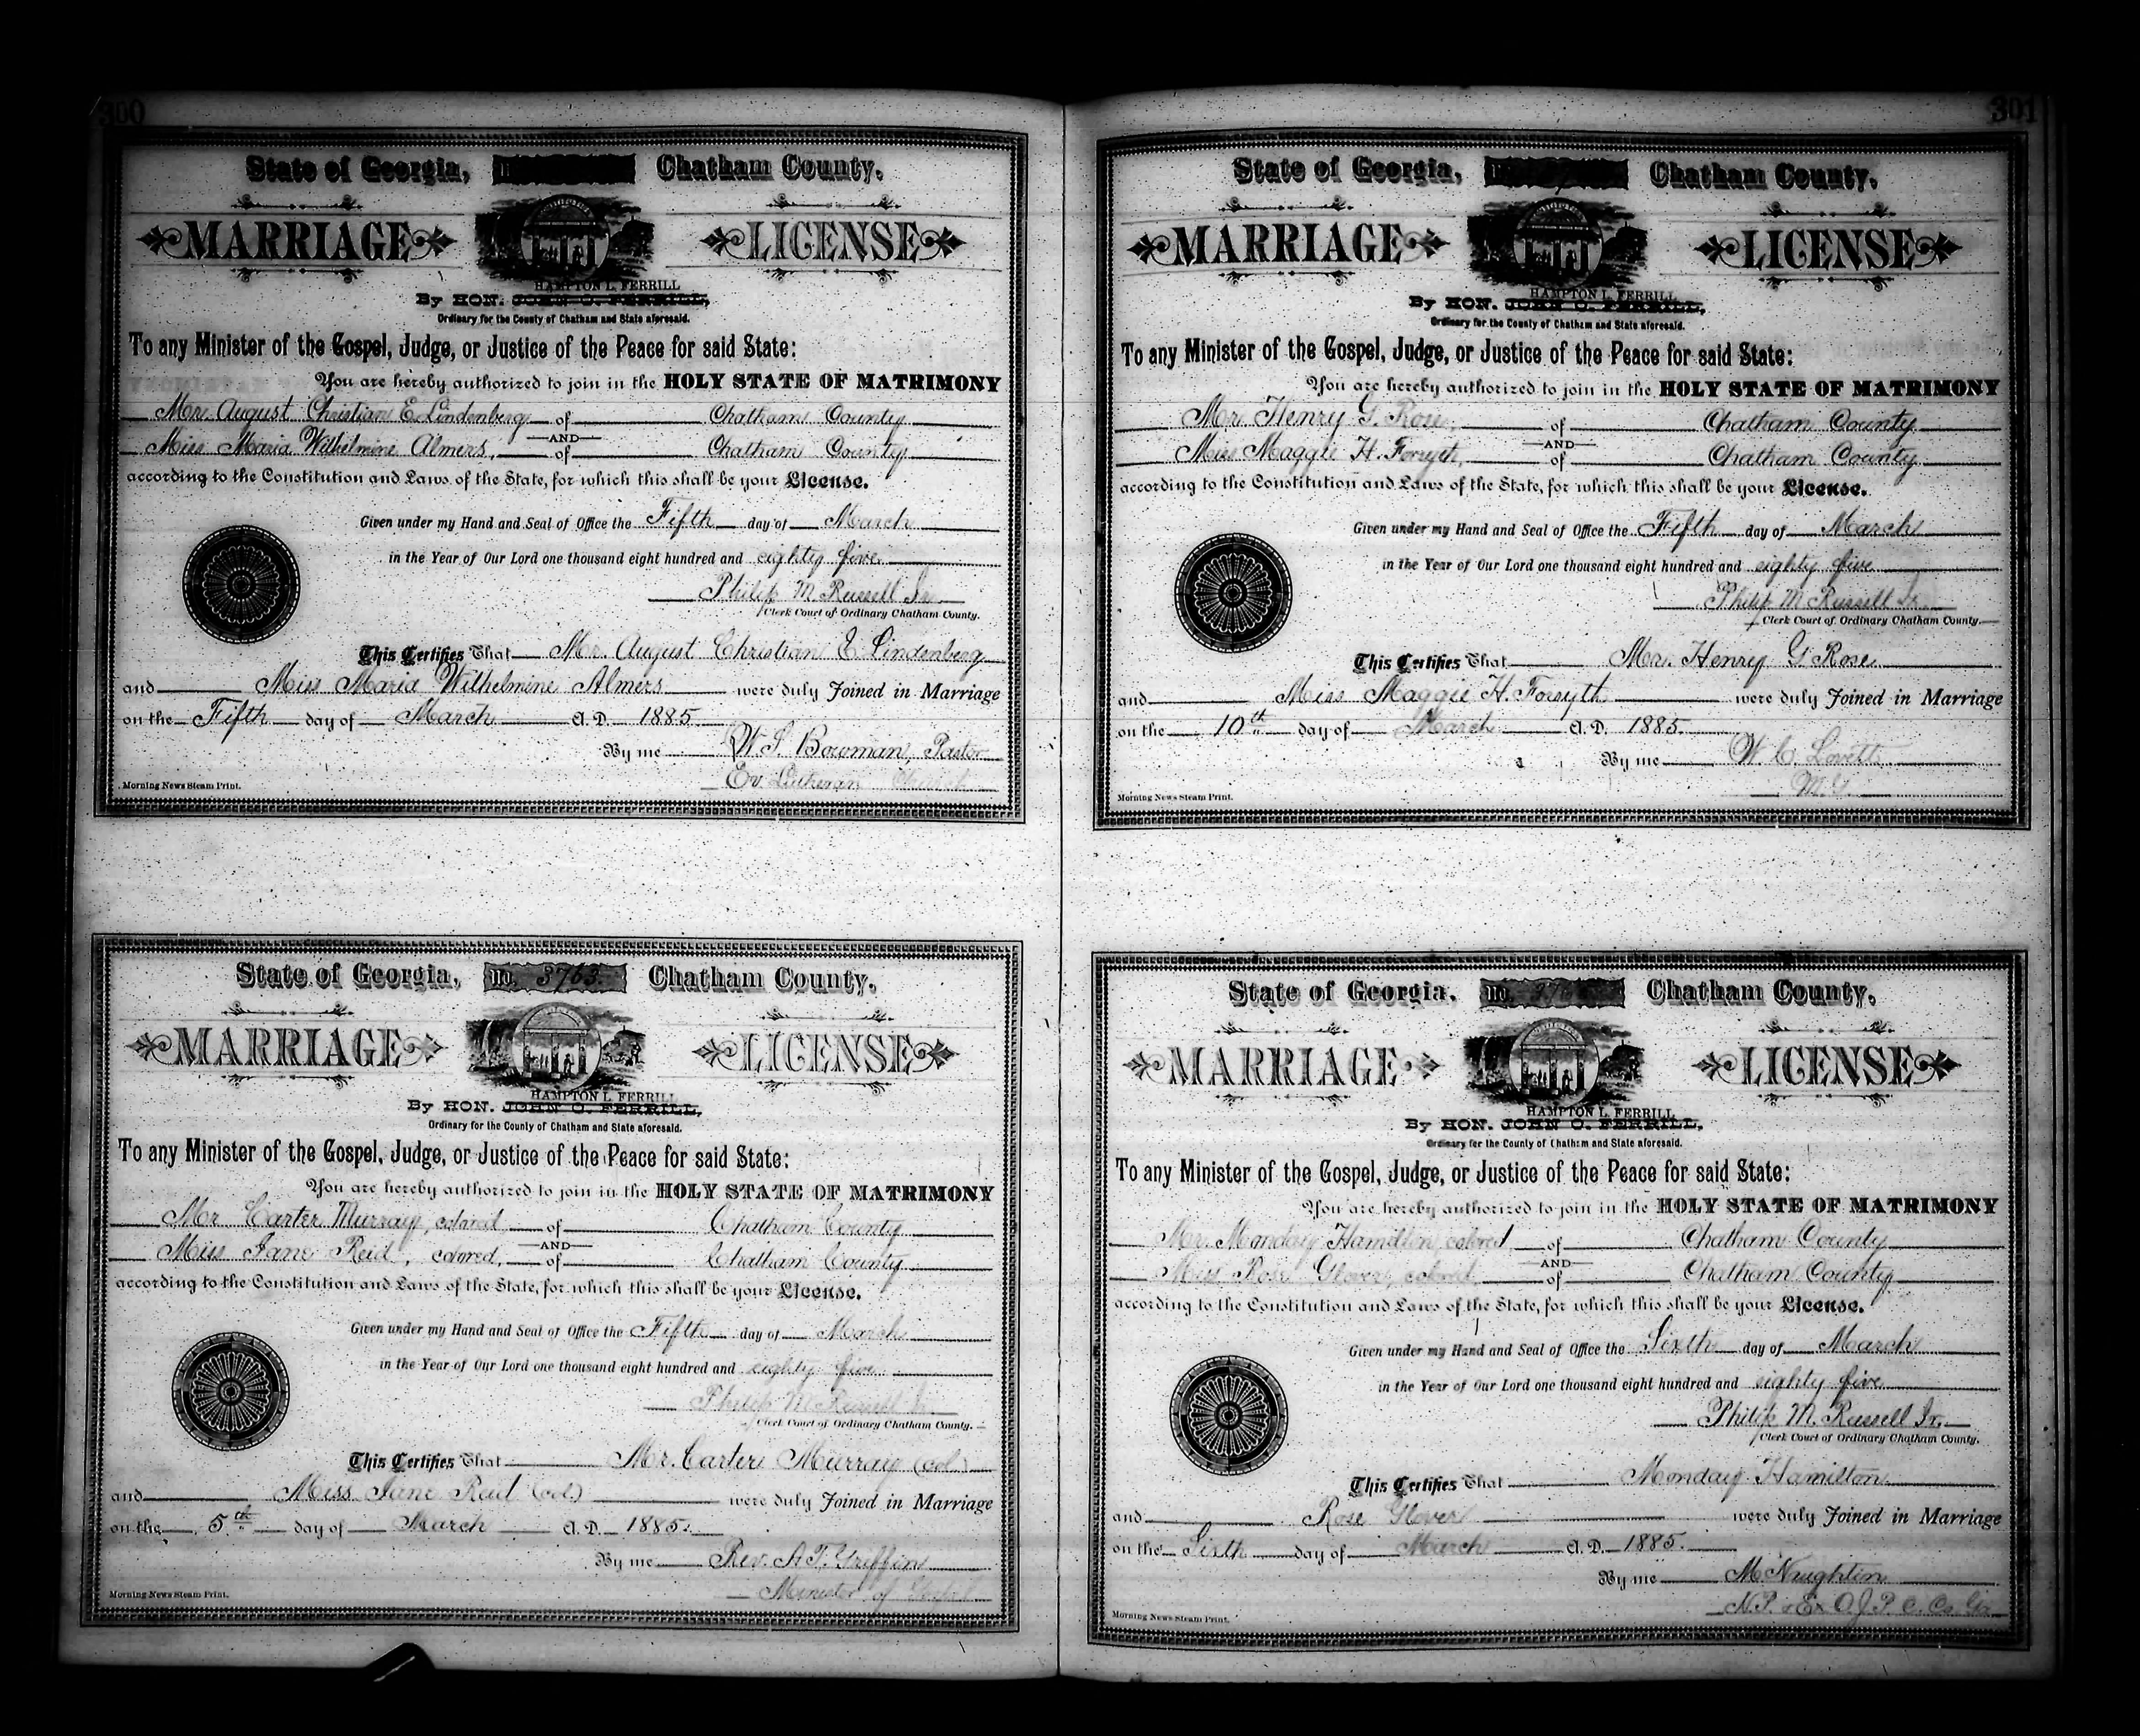 300
State of Georgia, Chatham County.
MARRIAGE LICENSE
HAMPTON L. FERRILL
By HON. JOHN O. FERRILL,
Ordinary for the County of Chatham and State aforesaid.
To any Minister of the Gospel, Judge, or Justice of the Peace for said State:
You are hereby authorized to join in the HOLY STATE OF MATRIMONY
Mr. August Christian E. Lindenberg of Chatham County
AND
Miss Maria Wilhelmine Almers, of Chatham County
according to the Constitution and Laws of the State, for which this shall be your License.
Given under my Hand and Seal of Office the Fifth day of March
in the Year of Our Lord one thousand eight hundred and eighty five
Philip M. Russell Jr.
Clerk Court of Ordinary Chatham County.
This Certifies That Mr. August Christian E. Lindenberg
and Miss Maria Wilhelmine Almers were duly Joined in Marriage
on the Fifth day of March A. D. 1885
By me W. S. Bowman, Pastor
Ev. Lutheran Church
Morning News Steam Print.
State of Georgia, No. 3763. Chatham County.
MARRIAGE LICENSE
HAMPTON L. FERRILL
By HON. JOHN O. FERRILL,
Ordinary for the County of Chatham and State aforesaid.
To any Minister of the Gospel, Judge, or Justice of the Peace for said State:
You are hereby authorized to join in the HOLY STATE OF MATRIMONY
Mr. Carter Murray, colored of Chatham County
AND
Miss Jane Reid, colored, of Chatham County
according to the Constitution and Laws of the State, for which this shall be your License.
Given under my Hand and Seal of Office the Fifth day of March
in the Year of Our Lord one thousand eight hundred and eighty five
Philip M. Russell Jr.
Clerk Court of Ordinary Chatham County.
This Certifies That Mr. Carter Murray (col)
and Miss Jane Reid (col.) were duly Joined in Marriage
on the 5th day of March A. D. 1885.
By me Rev. A. T. Griffin
Minister of Gospel
Morning News Steam Print.
301
State of Georgia, Chatham County.
MARRIAGE LICENSE
HAMPTON L. FERRILL
By HON. JOHN O. FERRILL,
Ordinary for the County of Chatham and State aforesaid.
To any Minister of the Gospel, Judge, or Justice of the Peace for said State:
You are hereby authorized to join in the HOLY STATE OF MATRIMONY
Mr. Henry G. Rose, of Chatham County
AND
Miss Maggie H. Forsyth, of Chatham County
according to the Constitution and Laws of the State, for which this shall be your License.
Given under my Hand and Seal of Office the Fifth day of March
in the Year of Our Lord one thousand eight hundred and eighty five
Philip M. Russell Jr.
Clerk Court of Ordinary Chatham County.
This Certifies That Mr. Henry G. Rose
and Miss Maggie H. Forsyth were duly Joined in Marriage
on the 10th day of March A. D. 1885.
By me W. C. Lovett
M. G.
Morning News Steam Print.
State of Georgia, No. Chatham County.
MARRIAGE LICENSE
HAMPTON L. FERRILL
By HON. JOHN O. FERRILL,
Ordinary for the County of Chatham and State aforesaid.
To any Minister of the Gospel, Judge, or Justice of the Peace for said State:
You are hereby authorized to join in the HOLY STATE OF MATRIMONY
Mr. Monday Hamilton, colored of Chatham County
AND
Miss Rose Glover, colored of Chatham County
according to the Constitution and Laws of the State, for which this shall be your License.
Given under my Hand and Seal of Office the Sixth day of March
in the Year of Our Lord one thousand eight hundred and eighty five
Philip M. Russell Jr.
Clerk Court of Ordinary Chatham County.
This Certifies That Monday Hamilton
and Rose Glover were duly Joined in Marriage
on the Sixth day of March A. D. 1885.
By me M Naughtin
N. P. & Ex O. J. P. C. Co. Ga
Morning News Steam Print.